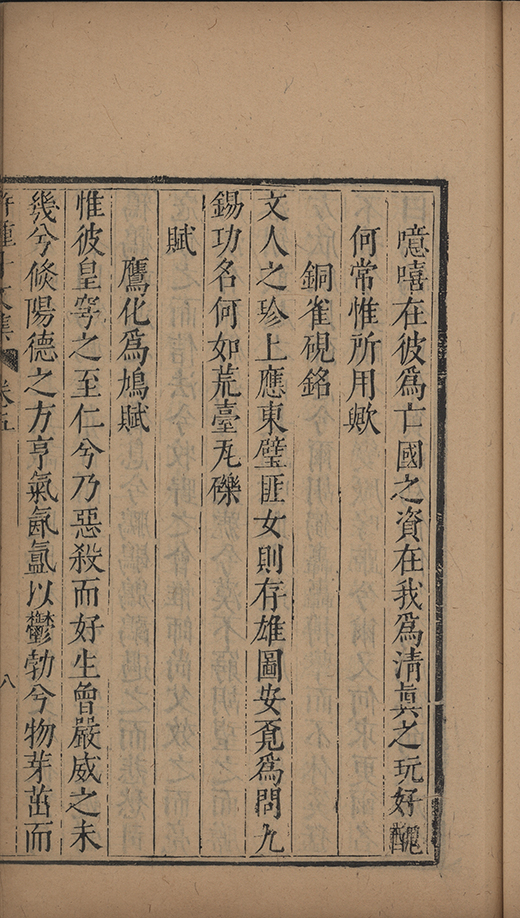 噫嘻在彼爲亡國之資在我爲清眞之玩好醜
何常惟所用歟
銅雀硯銘
文人之珍上應東璧匪女則存雄圖安覔爲問九
錫功名何如荒臺瓦礫
賦
鷹化爲鳩賦
惟彼皇穹之至仁兮乃惡殺而好生曾嚴威之未
幾兮倐陽德之方亨氣氤氳以鬱勃兮物芽茁而
文集
卷五
八